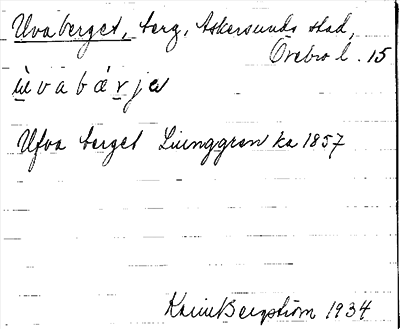 Uvaberget, berg, Askersunds stad,
Örebro l. 15
ùvabárja
Ufva berget Liunggren ka 1857
Karin Bergström 1934